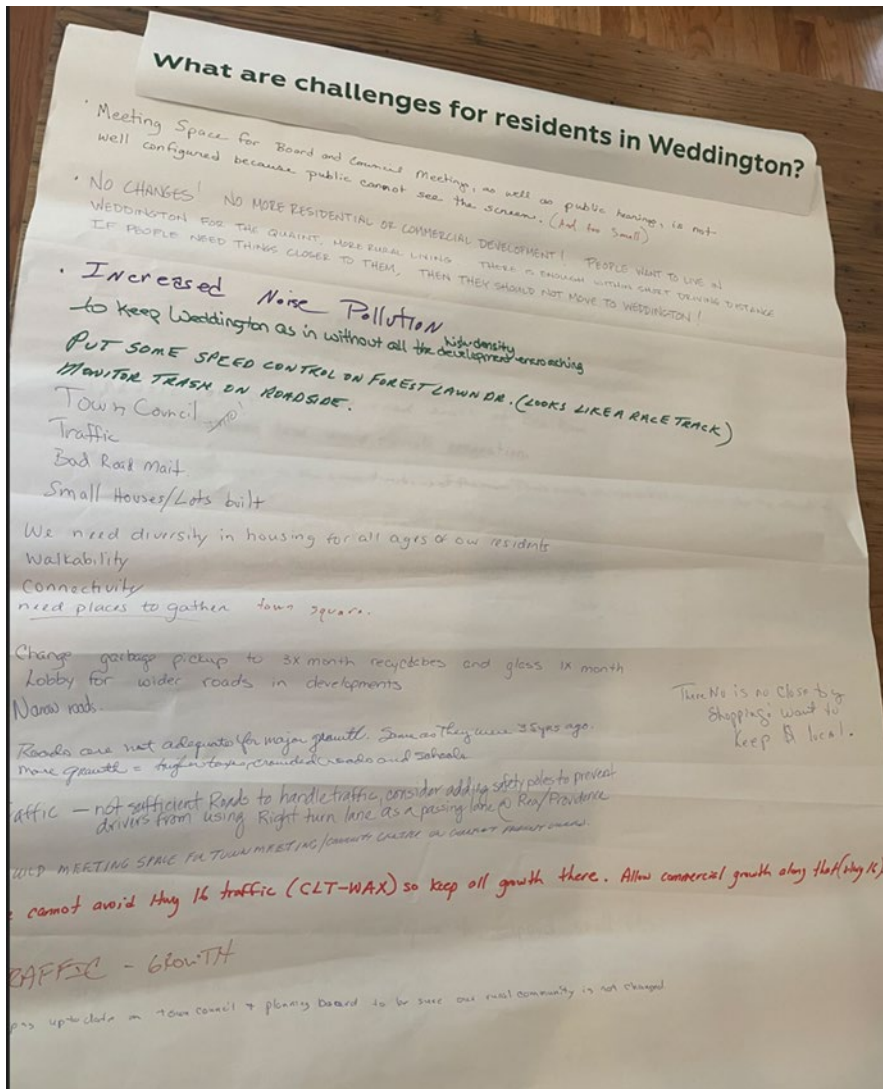 What are challenges for residents in Weddington?
· Meeting Space for Board and Council Meetings, as well as public hearings, is not
well configured because public cannot see the screen. (And too small)
· NO CHANGES! NO MORE RESIDENTIAL OR COMMERCIAL DEVELOPMENT! PEOPLE WANT TO LIVE IN
WEDDINGTON FOR THE QUAINT, MORE RURAL LIVING. THERE IS ENOUGH WITHIN SHORT DRIVING DISTANCE
IF PEOPLE NEED THINGS CLOSER TO THEM, THEN THEY SHOULD NOT MOVE TO WEDDINGTON!
· Increased Noise Pollution
to keep Weddington as in without all the high density development encroaching
PUT SOME SPEED CONTROL ON FOREST LAWN DR. (LOOKS LIKE A RACE TRACK)
MONITOR TRASH ON ROADSIDE.
Town Council
Traffic
Bad Road Mait.
Small Houses/Lots built
We need diversity in housing for all ages of our residents
Walkability
Connectivity
need places to gather town square.
Change garbage pickup to 3x month recyclebes and glass 1x month
Lobby for wider roads in developments
Narrow roads.
There No is no close by
Shopping: want to
keep $ local.
Roads are not adequate for major growth. Same as they were 35yrs ago.
more growth = higher taxes, crowded roads and schools
affic — not sufficient Roads to handle traffic, consider adding safety poles to prevent
drivers from using Right turn lane as a passing lane @ Rea/Providence
UILD MEETING SPACE FOR TOWN MEETING/
cannot avoid Hwy 16 traffic (CLT-WAX) so keep all growth there. Allow commercial growth along that (Hwy 16)
RAFFIC - GROWTH
up to date on town council + planning board to be sure our rural community is not changed